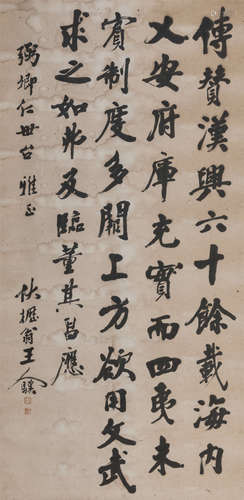 傳贊漢興六十餘載海內
乂安府庫充實而四夷未
賓制度多闕上方欲用文武
求之如弗及臨董其昌應
弼卿仁世台 雅正
伏櫪翁王人驥